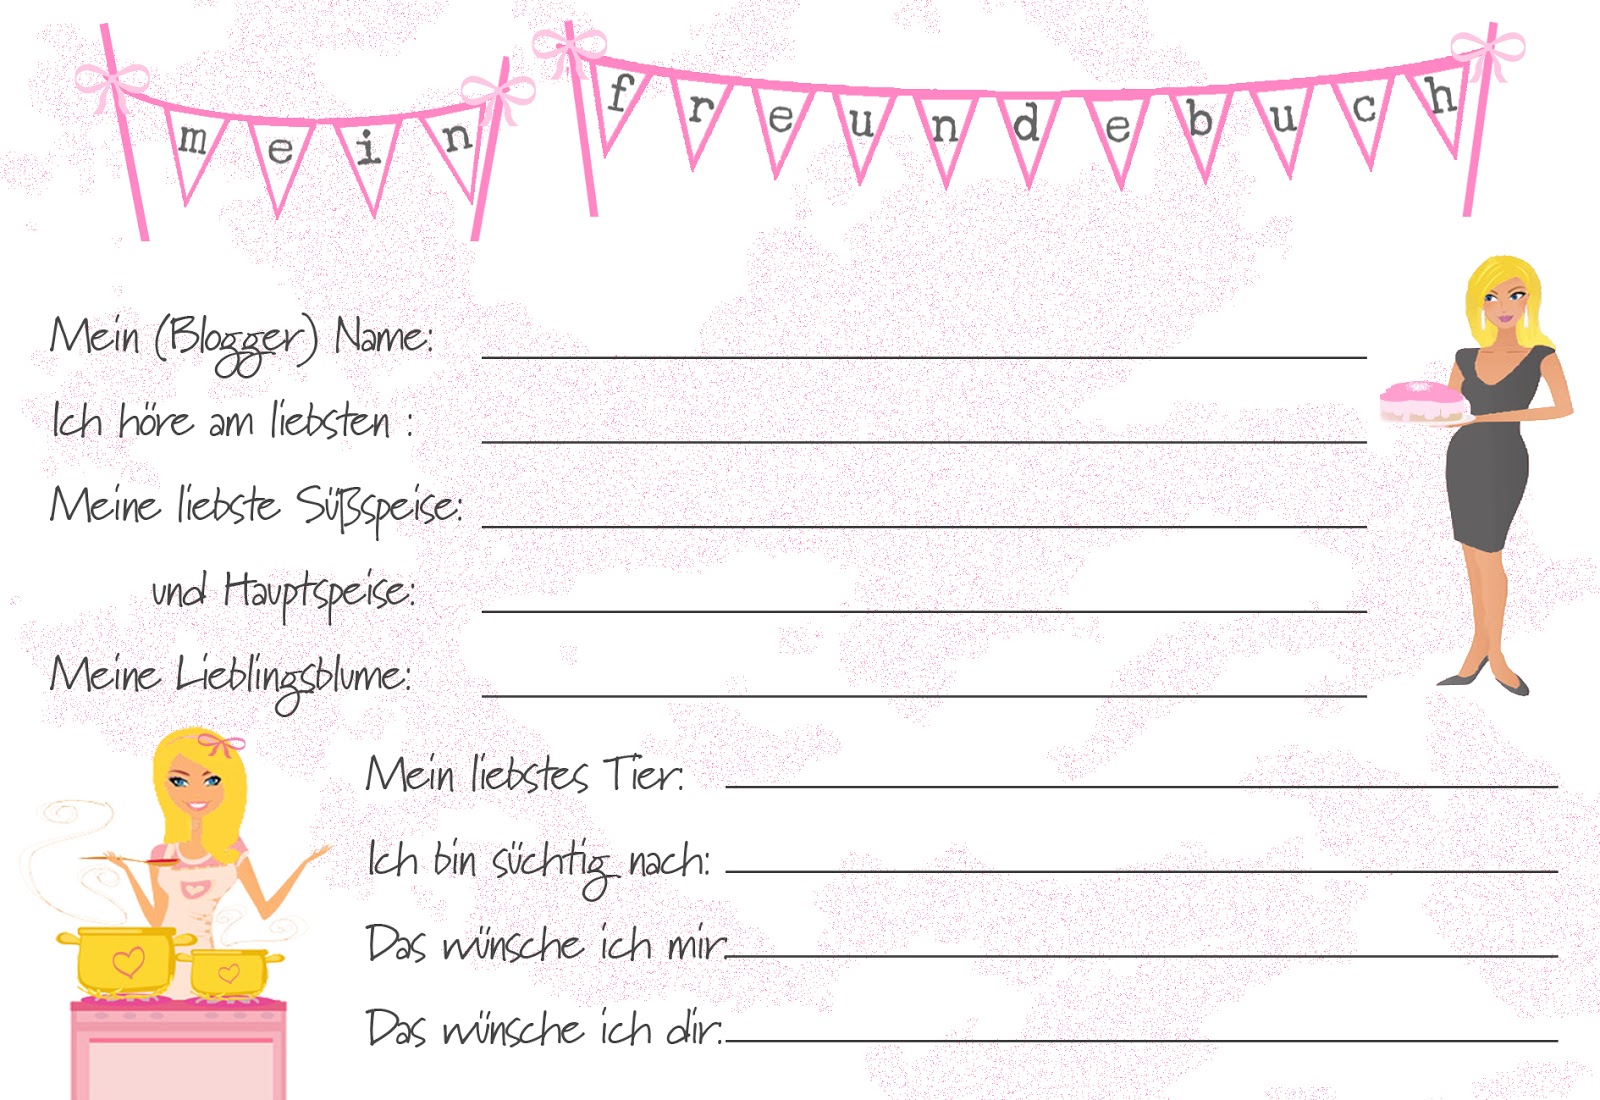 mein freundebuch
Mein (Blogger) Name:
Ich höre am liebsten :
Meine liebste Süßspeise:
und Hauptspeise:
Meine Lieblingsblume:
Mein liebstes Tier:
Ich bin süchtig nach:
Das wünsche ich mir:
Das wünsche ich dir: